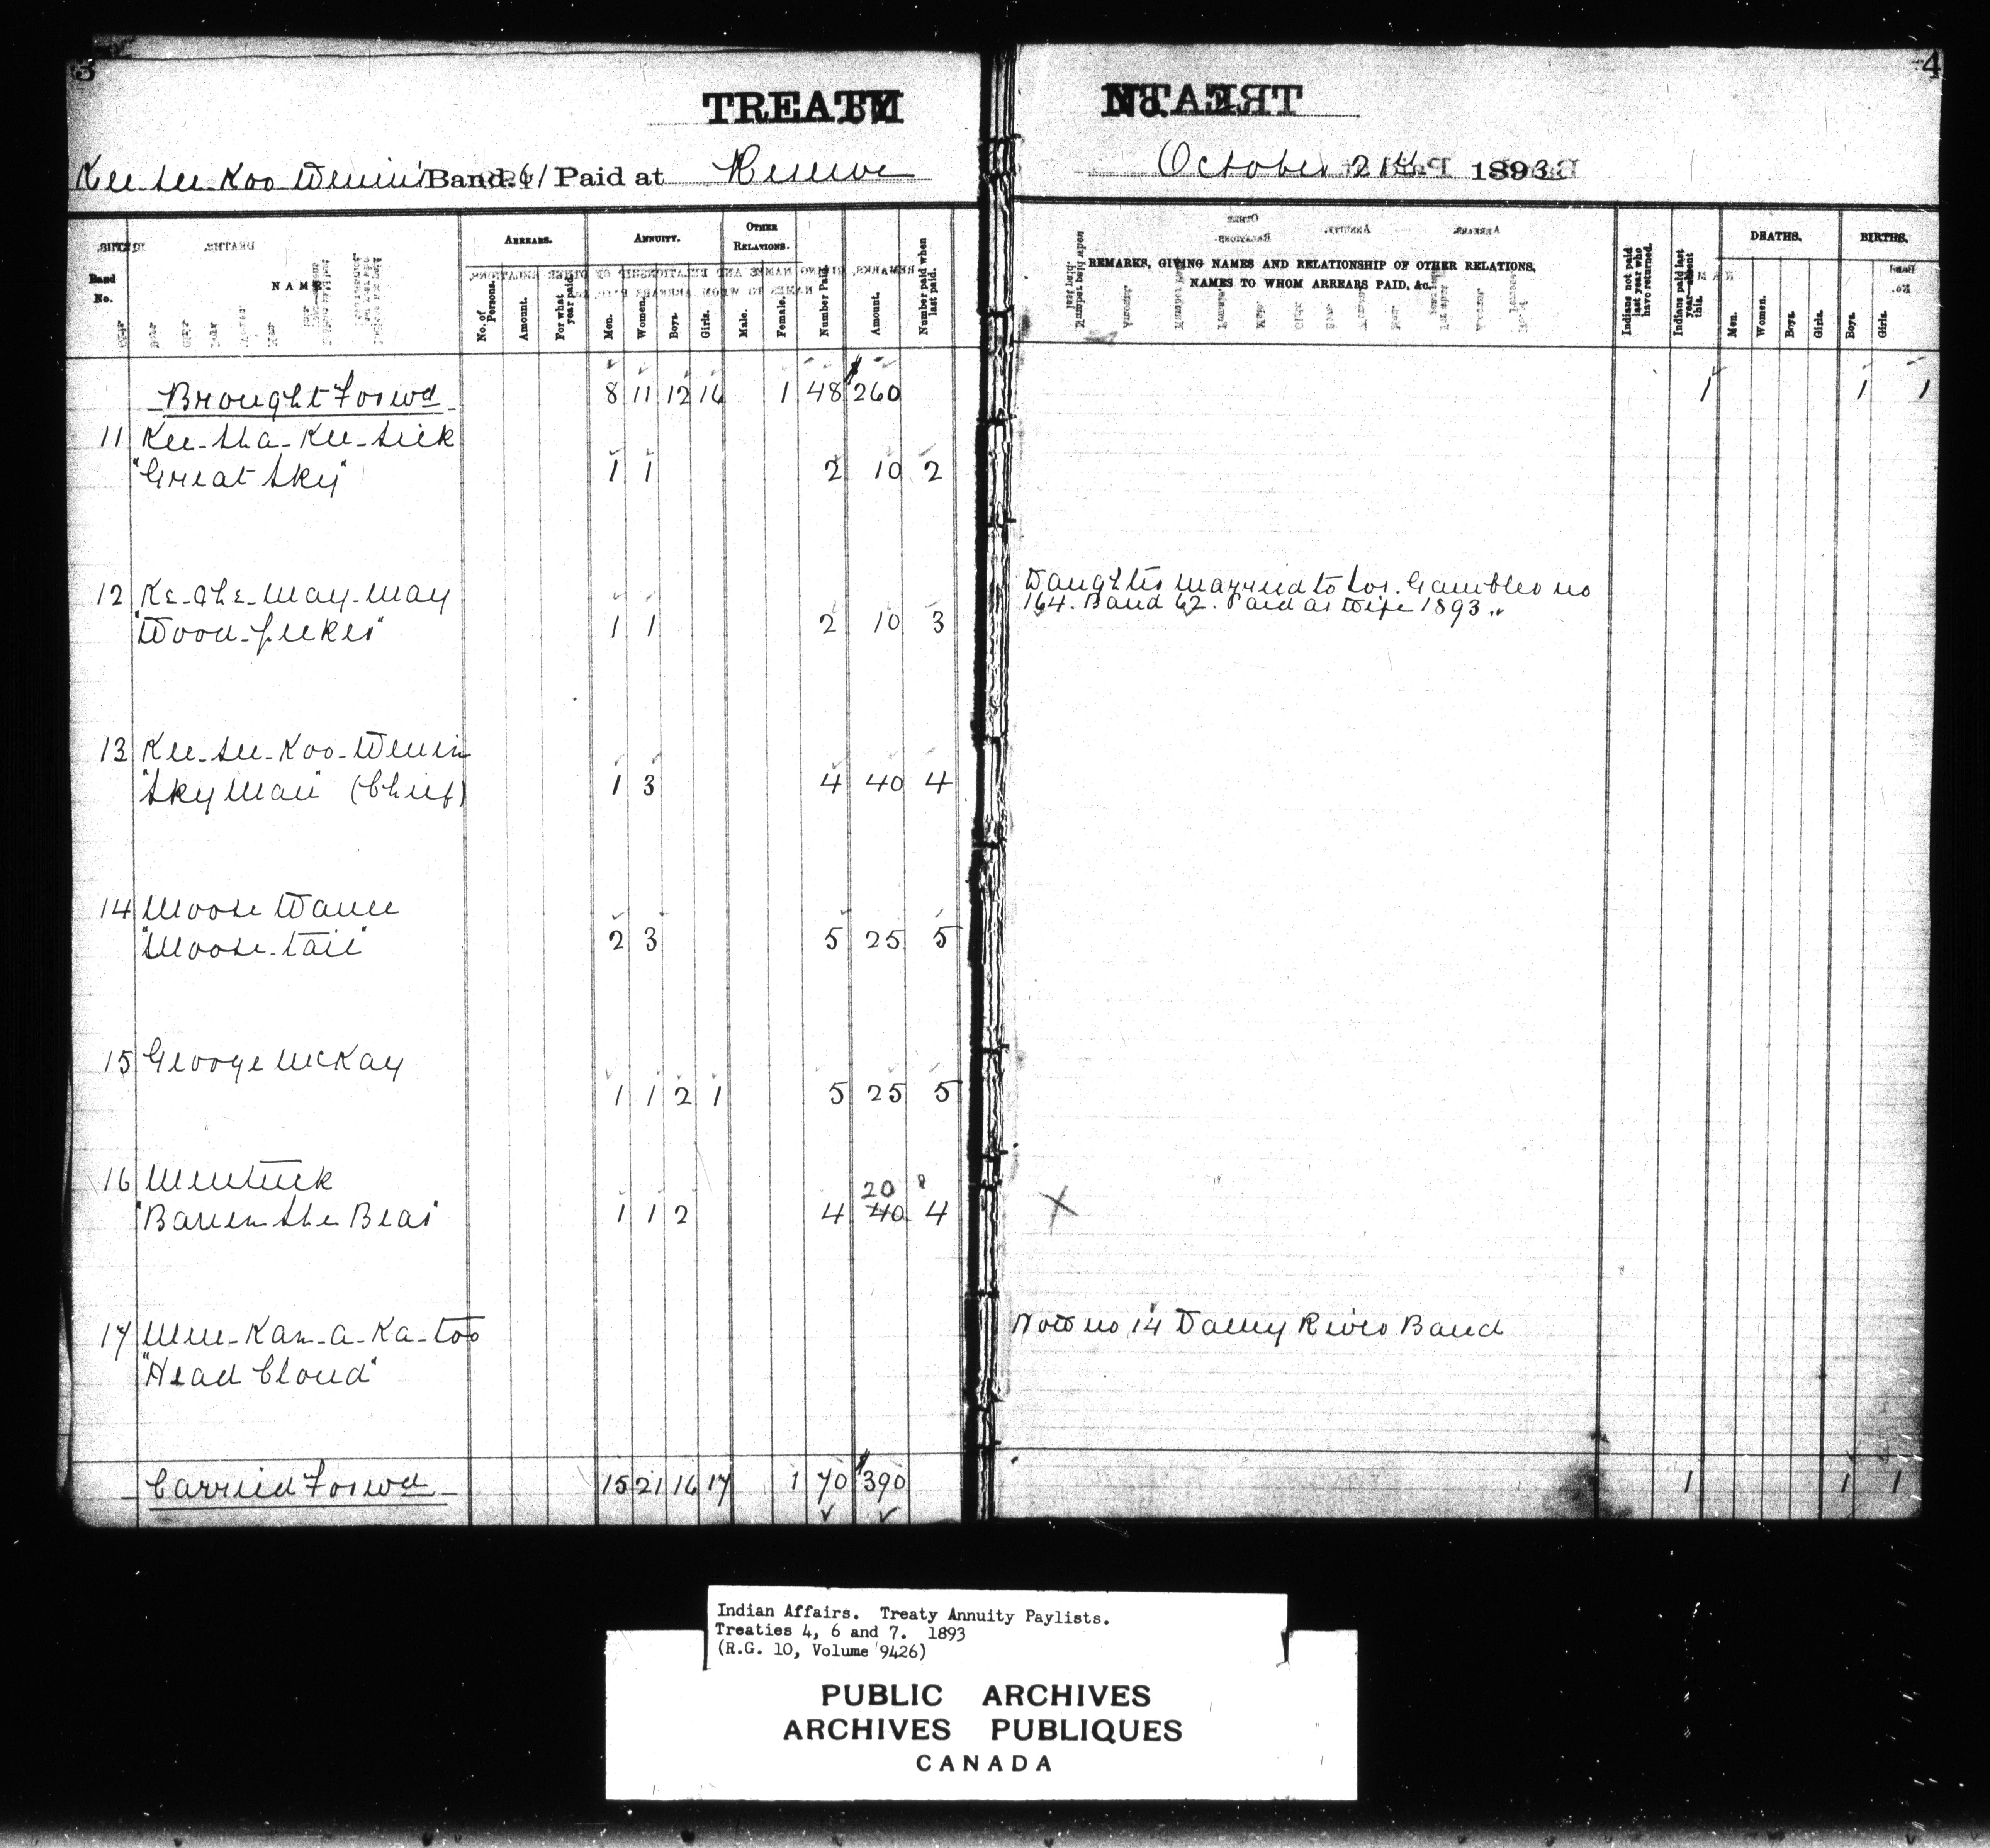 3
4
TREATY
Kee-see-Koo-Wenin's Band. 61 Paid at Reserve
October 21st 1893
Band No.
NAME
ARREARS.
No. of Persons.
Amount.
For what year paid.
ANNUITY.
Men.
Women.
Boys.
Girls.
OTHER RELATIONS.
Male.
Female.
Number Paid
Amount.
Number paid when last paid.
REMARKS, GIVING NAMES AND RELATIONSHIP OF OTHER RELATIONS,
NAMES TO WHOM ARREARS PAID, &c.
Indians not paid last year who have returned.
Indians paid last year absent this.
DEATHS.
Men.
Women.
Boys.
Girls.
BIRTHS.
Boys.
Girls.
Brought Forwd 8 11 12 16 1 48 $260 1 1 1
11 Kee-sha-Kee-sick
"Great Sky" 1 1 2 10 2
12 Ke-che-may-may
"Wood-pecker" 1 1 2 10 3
Daughter married to Jos. Gambler no
164. Band 62. Paid as Wife 1893.
13 Kee-see-Koo-Wenin
"Sky Man" (Chief) 1 3 4 40 4
14 Moose Wanee
"Moose-tail" 2 3 5 25 5
15 George McKay
1 1 2 1 5 25 5
16
20
1 1 2 4 40 4 X
17 Mee-Kan-a-Ka-too
"Head Cloud"
Now no 14 Valley River Band
Carried Forwd 15 21 16 17 1 70 $390 1 1 1
Indian Affairs. Treaty Annuity Paylists.
Treaties 4, 6 and 7. 1893
(R.G. 10, Volume 9426)
PUBLIC ARCHIVES
ARCHIVES PUBLIQUES
CANADA